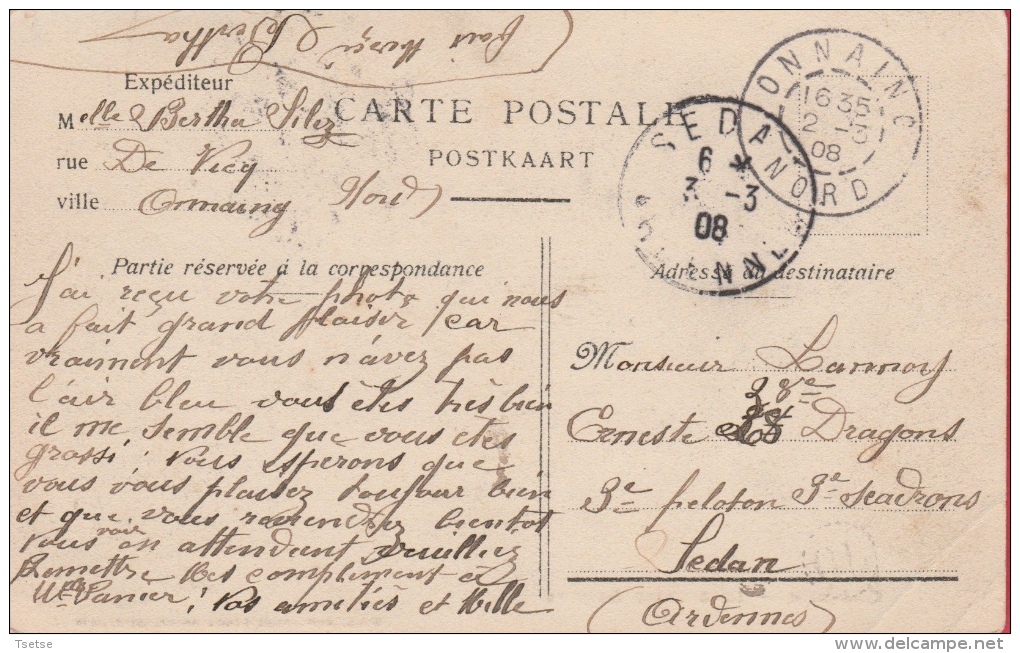 bais merçi
Bertha
Expéditeur
Melle Bertha Silez
rue De Vicq
ville Onnaing Nord
CARTE POSTALE
POSTKAART
ONNAING
16 35
2 - 3
08
NORD
SEDAN
6 *
3 - 3
08
ARDENNES
Partie réservée à la correspondance
Adresse du destinataire
J'ai reçu votre photo qui nous
a fait grand plaisir car
vraiment vous n'avez pas
l'air bleu vous êtes très bien
il me semble que vous êtes
grossi; nous esperons que
vous vous plaisez toujour bien
et que vous reviendrez bientot
vous voir en attendant veuillez
Remettre des compliment à
Vanier; vos amitiés et Mille
Monsieur Lannoy
Erneste 28e Dragons
3e peloton 3e seadrons
Sedan
(Ardennes)
Tsetse
www.delcampe.net